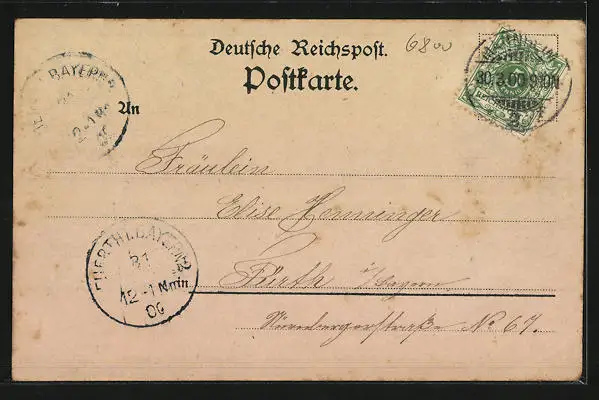 Deutsche Reichspost.
6800
Postkarte.
30.3.00
BAYERN
An
Fräulein
Elise Henninger
FUERTH I. BAYERN
31
12-1 Nm
00
Fürth i/Bayern
Nürnbergerstraße No 67.